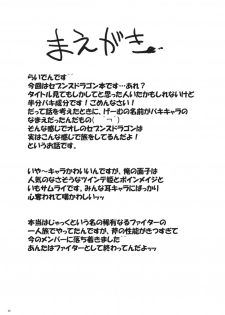 まえがき
らいでんです
今回はセブンスドラゴン本です…あれ？
タイトル見てもしかしてと思った人いたかもしれないけど
半分バキ成分です！ごめんなさい！
だって話を考えたときに、げーむの名前がバキキャラの
なまえだったんだもの
そんな感じでオレのセブンスドラゴンは
実はこんな感じで旅をしてるんだよ！
というお話です。
いや〜キャラかわいいんですが、俺の面子は
人気のなさそうなツインテ姫とボインメイジと
いもサムライです。みんな耳キャラにばっかり
心奪われて嘆かわしいッ
本当はじゃっくという名の稀有なるファイターの
一人旅でやってたんですが、斧の性能がきつすぎて
今のメンバーに落ち着きました
あんたはファイターとして終わってんだよッッ